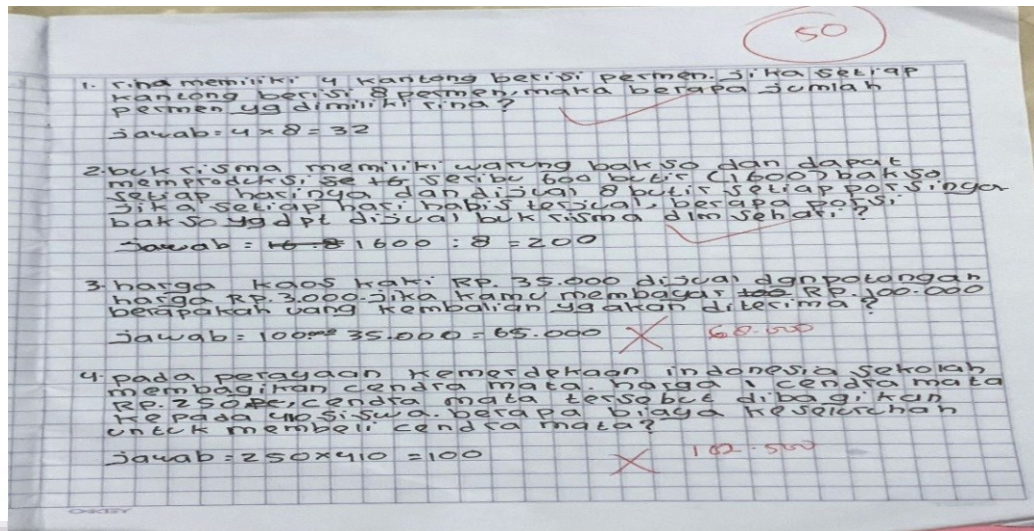 50
1. rina memiliki 4 kantong berisi permen. jika setiap
kantong berisi 8 permen, maka berapa jumlah
permen yg dimiliki rina?
jawab = 4 × 8 = 32
2. buk risma memiliki warung bakso dan dapat
memproduksi se seribu 600 butir (1600) bakso
setiap harinya dan dijual 8 butir setiap porsinya
jika setiap hari habis terjual, berapa porsi
bakso yg dpt dijual buk risma dlm sehari?
jawab = 1600 : 8 = 200
3. harga kaos kaki RP. 35.000 dijual dgn potongan
harga RP. 3.000. jika kamu membayar RP 100.000
berapakah uang kembalian yg akan diterima?
jawab = 100 35.000 = 65.000 68.000
4. pada perayaan kemerdekaan indonesia sekolah
membagikan cendra mata. harga 1 cendra mata
RP. 250 , cendra mata tersebut dibagikan
kepada 410 siswa. berapa biaya keseluruhan
untuk membeli cendra mata?
jawab = 250 × 410 = 100 102.500